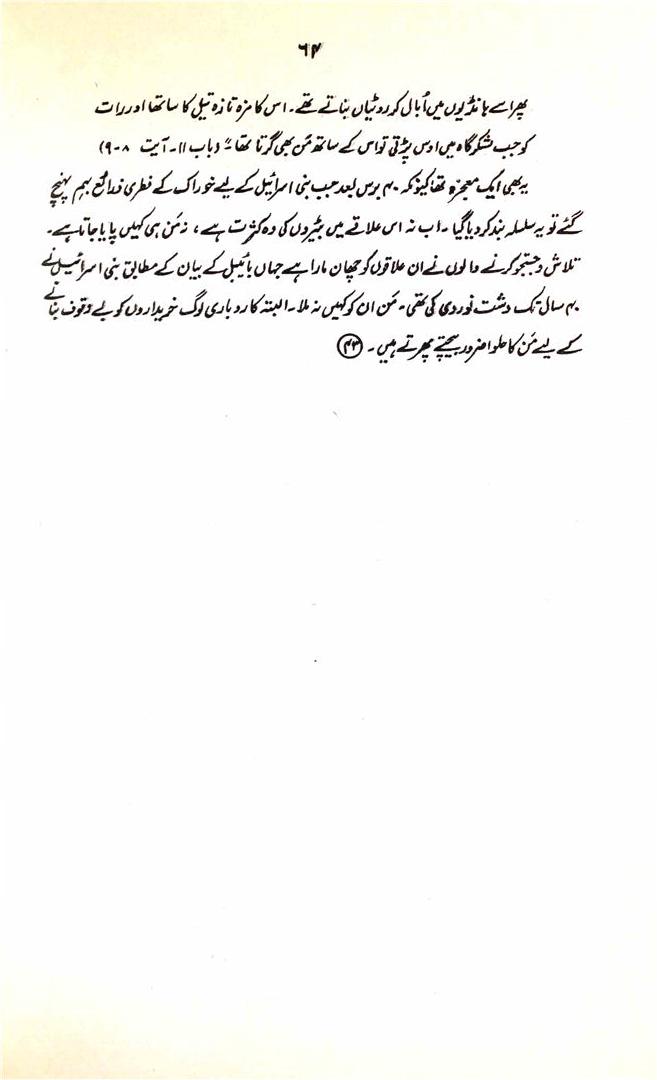 ۶۴
پھر اسے ہانڈیوں میں اُبال کر روٹیاں بناتے تھے۔ اس کا مزہ تازہ تیل کا سا تھا اور رات
کو جب لشکر گاہ میں اوس پڑتی تو اس کے ساتھ مَن بھی گرتا تھا۔" (باب ۱۱۔ آیت ۸-۹)
یہ بھی ایک معجزہ تھا کیونکہ ۴۰ برس بعد جب بنی اسرائیل کے لیے خوراک کے فطری ذرائع بہم پہنچ
گئے تو یہ سلسلہ بند کر دیا گیا۔ اب نہ اس علاقے میں بٹیروں کی وہ کثرت ہے، نہ مَن ہی کہیں پایا جاتا ہے۔
تلاش و جستجو کرنے والوں نے ان علاقوں کو چھان مارا ہے جہاں بائیبل کے بیان کے مطابق بنی اسرائیل نے
۴۰ سال تک دشت نوردی کی تھی۔ مَن ان کو کہیں نہ ملا۔ البتہ کاروباری لوگ خریداروں کو بے وقوف بنانے
کے لیے مَن کا حلوا ضرور بیچتے پھرتے ہیں۔ (۴۳)